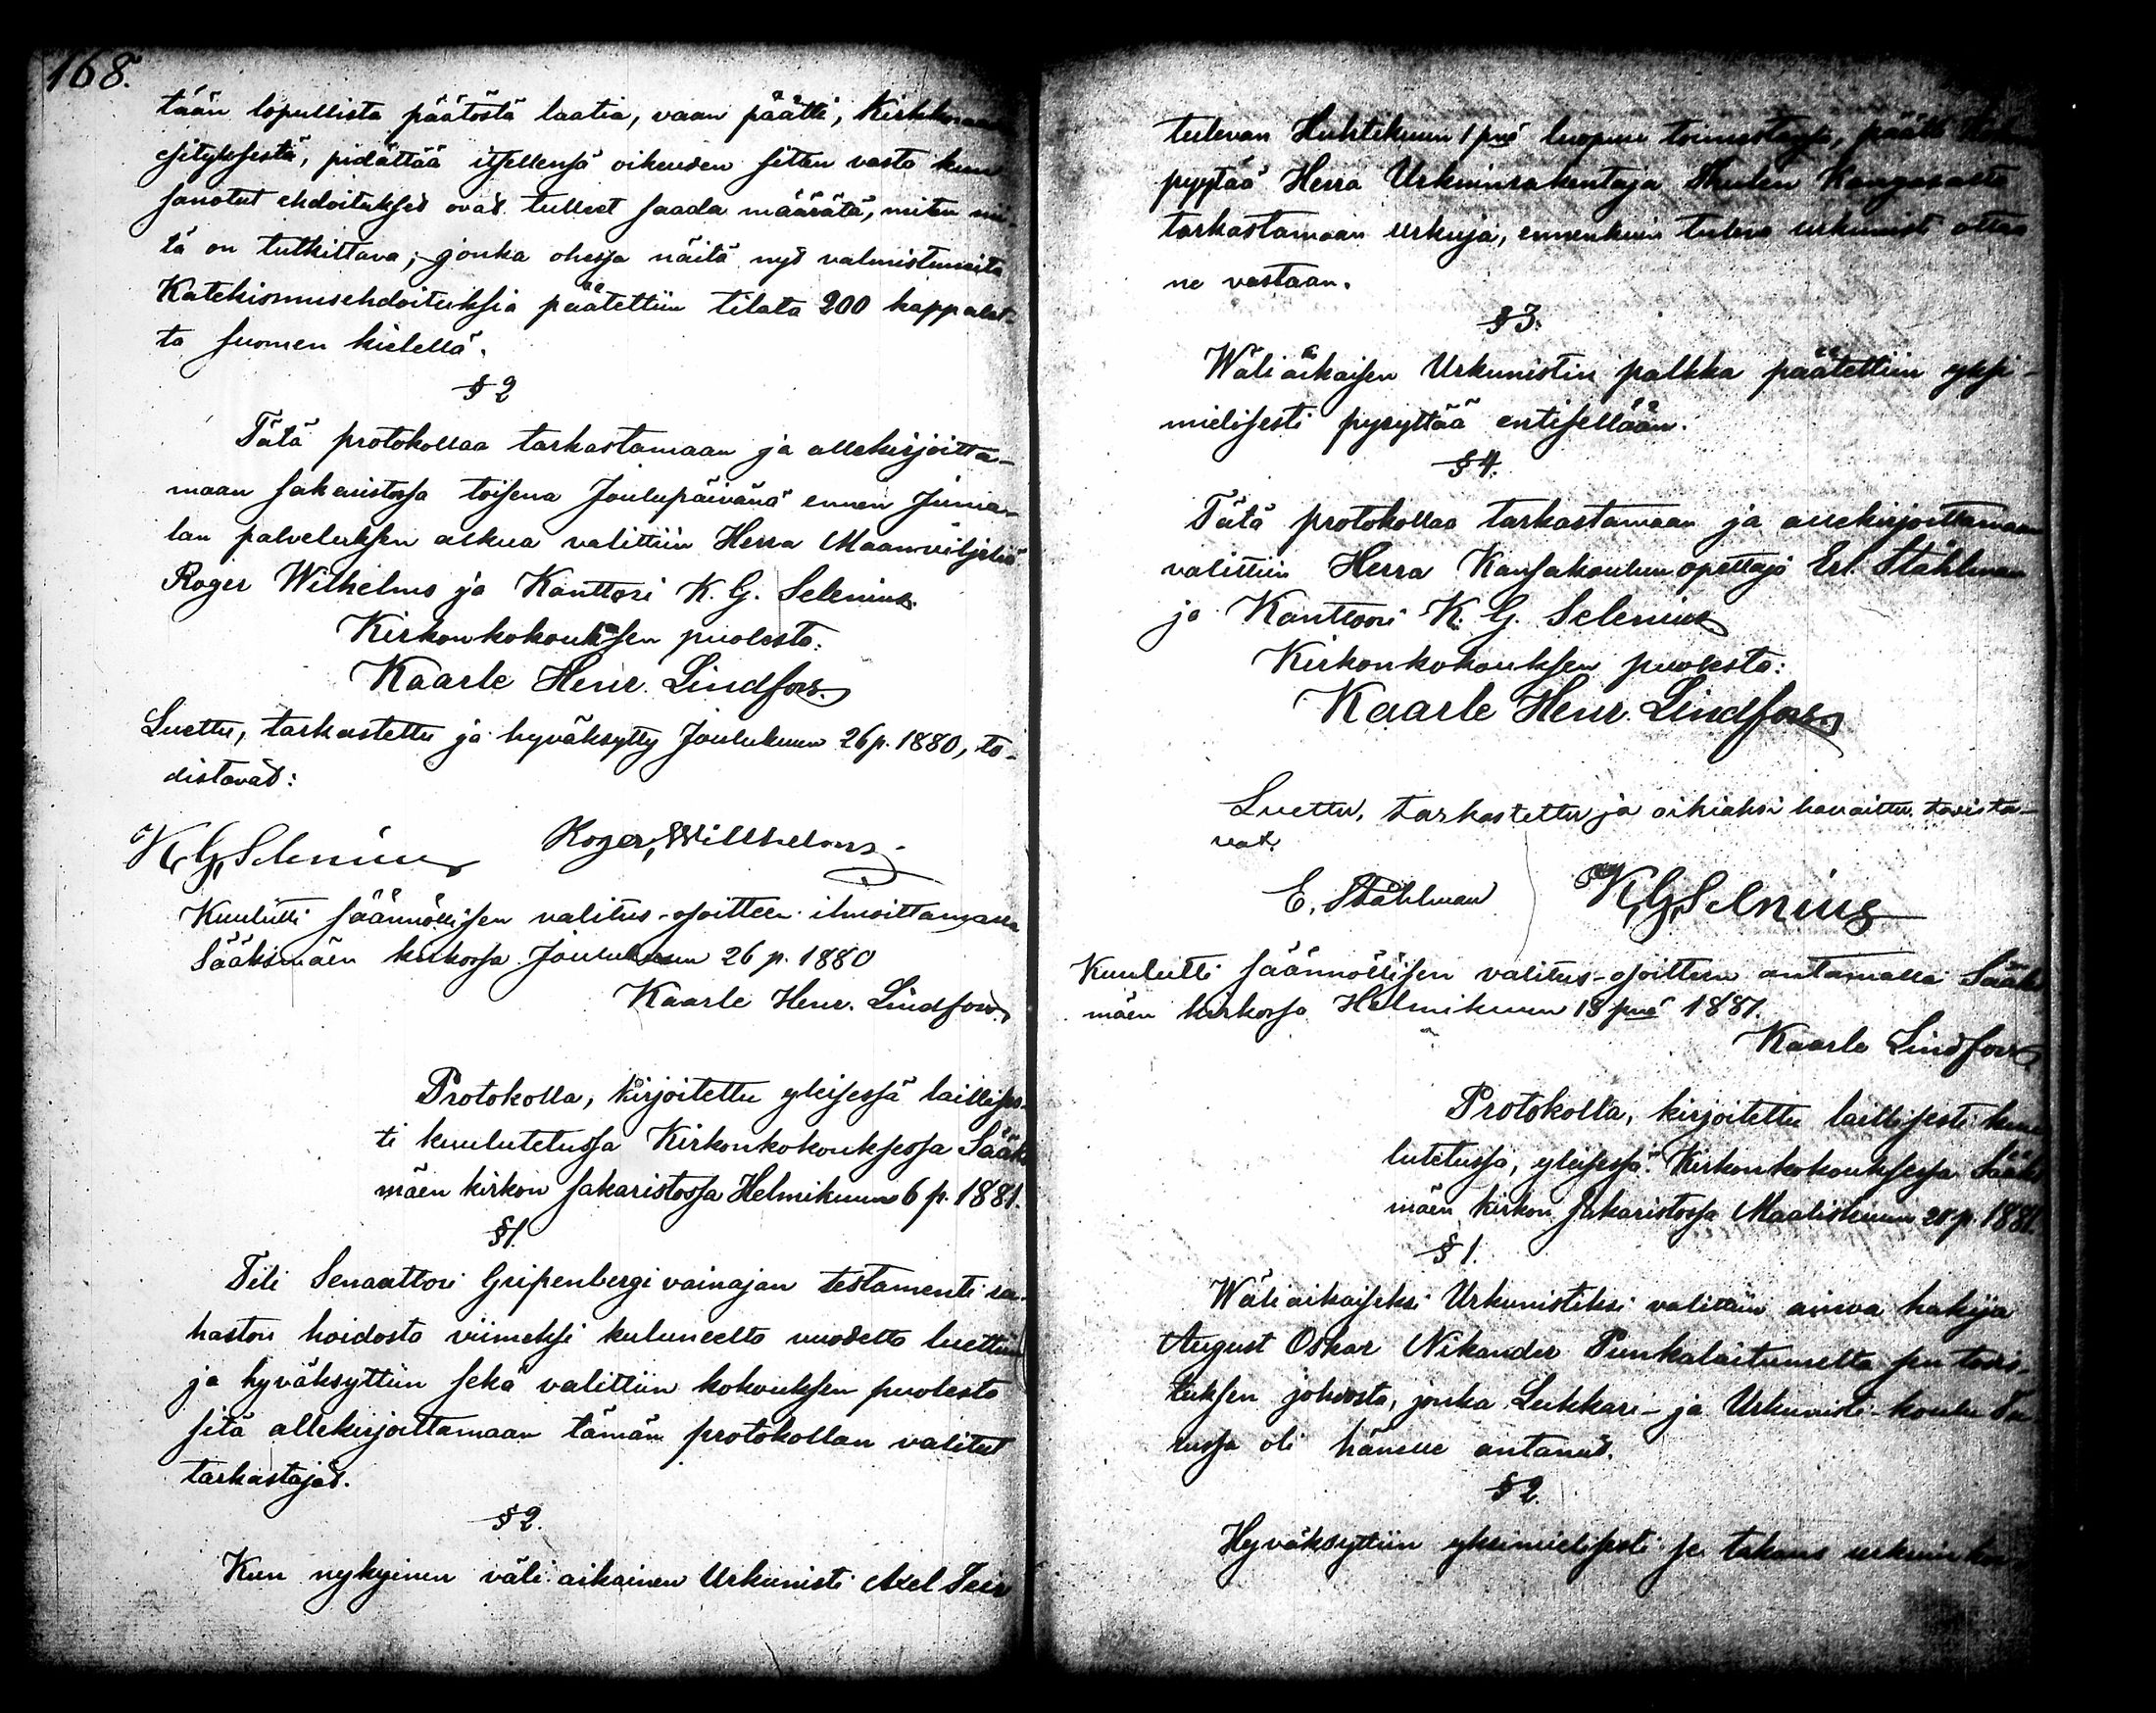 168.
tään lopullista päätöstä laatia, vaan päätti, Kirkkoraadin
esityksestä, pidättää itsellensä oikeuden sitten vasta kun
sanotut ehdoitukset ovat tulleet saada määrätä, miten nii-
tä on tutkittava; jonka ohessa näitä nyt valmistuneita
Katekismusehdoituksia päätettiin tilata 200 kappalet-
ta suomen kielellä.
§ 2
Tätä protokollaa tarkastamaan ja allekirjoitta-
maan sakaristossa toisena Joulupäivänä ennen Juma-
lan palveluksen alkua valittiin Herra Maanviljeliä
Roger Wilhelms ja Kanttori K. G. Selenius.
Kirkonkokouksen puolesta:
Kaarle Henr. Lindfors.
Luettu, tarkastettu ja hyväksytty Joulukuun 26 p. 1880, to-
distavat:
K. G. Selenius Roger Willhelms
Kuulutti säännöllisen valitus-osoitteen ilmoittamalla
Sääksmäen kirkossa Joulukuun 26 p. 1880
Kaarle Henr. Lindfors.
Protokolla, kirjoitettu yleisessä laillises-
ti kuulutetussa Kirkonkokouksessa Sääks
mäen kirkon sakaristossa Helmikuun 6 p. 1881.
§ 1.
Tili Senaattori Gripenbergi vainajan testamenti ra-
haston hoidosta viimeksi kuluneelta vuodelta luettiin
ja hyväksyttiin sekä valittiin kokouksen puolesta
sitä allekirjoittamaan tämän protokollan valitut
tarkastajat.
§ 2.
Kun nykyinen väli-aikainen Urkunisti Axel
tulevan Huhtikuun 1 pnä luopuu toimestansa, päätti
pyytää Herra Urkuinrakentaja Thulen Kangasalta
tarkastamaan urkuja, ennenkuin tuleva urkunisti ottaa
ne vastaan.
§ 3.
Wäliaikaisen Urkunistin palkka päätettiin yksi-
mielisesti pysyttää entisellään.
§ 4.
Tätä protokollaa tarkastamaan ja allekirjoittamaan
valittiin Herra Kansakoulun opettaja Erl. Ståhlman
ja Kanttori K. G. Selenius
Kirkonkokouksen puolesta:
Kaarle Henr. Lindfors.
Luettu, tarkastettu ja oikiaksi havaittu, todista-
vat.
E. Ståhlman K. G. Selenius
Kuulutti säännöllisen valitus-osoitteen antamalla Sääks
mäen kirkossa Helmikuun 13 pnä 1881.
Kaarle Lindfors
Protokolla, kirjoitettu laillisesti kuu
lutetussa, yleisessä Kirkonkokouksessa Sääks
mäen kirkon sakaristossa Maaliskuun p. 1881.
§ 1.
Wäliaikaiseksi Urkunistiksi valittiin ainoa hakija
August Oskar Nikander Punkalaitumelta sen todis-
tuksen johdosta, jonka Lukkari- ja Urkunisti-koulu Tu
russa oli hänelle antanut.
§ 2.
Hyväksyttiin yksimielisesti se takaus urkuin